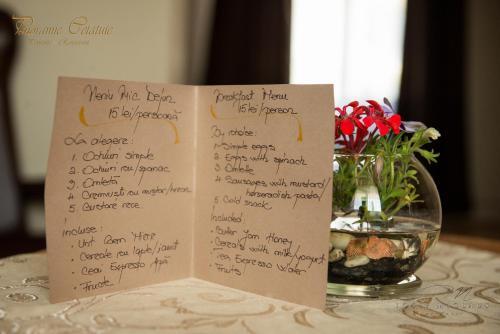 Panoramic Cetatuie
Pensiune & Restaurant
Meniu Mic Dejun
15 lei/persoană
La alegere:
1. Ochiuri simple
2. Ochiuri cu spanac
3. Omletă
4. Cremvuști cu muștar/hrean
5. Gustare rece
Incluse:
• Unt Gem Miere
• Cereale cu lapte/iaurt
• Ceai Espresso Apă
• Fructe
Breakfast Menu
15 lei/person
By choice:
1. Simple eggs
2. Eggs with spinach
3. Omlette
4. Sausages with mustard/
horseradish pasta/
5 Cold snack
Included:
• Buter Jam Honey
• Cereals with milk/yogurt
• Tea Espresso Water
• Fruits